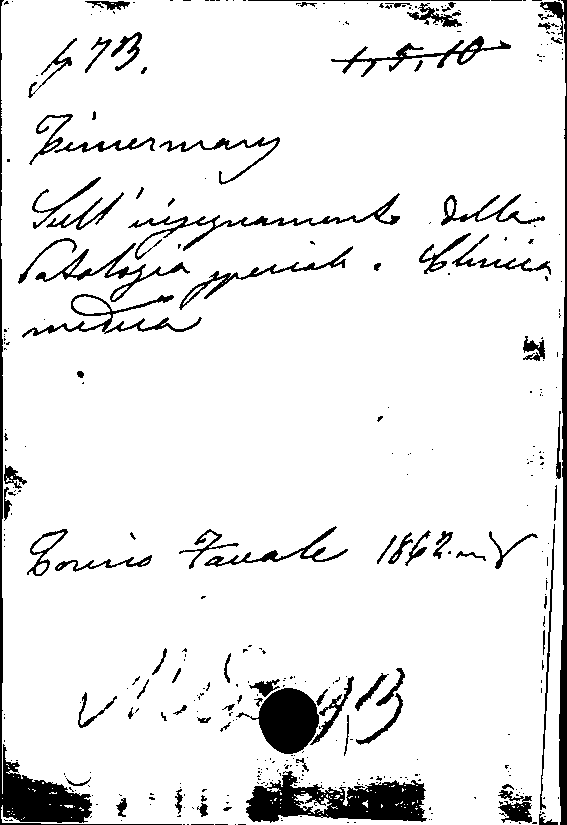 7B. 1,5,10
Timermans
Sull'insegnamento della
Patologia speciale e Clinica
medica
Torino Favale 1862 in 8